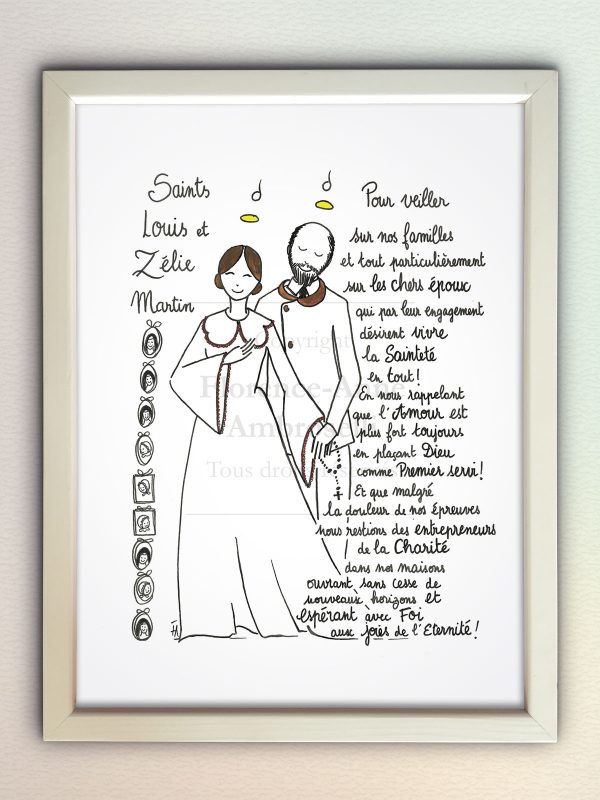 Saints
Louis et
Zélie
Martin
Pour veiller
sur nos familles
et tout particulièrement
sur les chers époux
qui par leur engagement
désirent vivre
la Sainteté
en tout!
En nous rappelant
que l'Amour est
plus fort toujours
en plaçant Dieu
comme Premier servi!
Et que malgré
la douleur de nos épreuves
nous restions des entrepreneurs
de la Charité
dans nos maisons
ouvrant sans cesse de
nouveaux horizons et
espérant avec Foi
aux joies de l'Eternité!
Copyright
Florence-Anne
Tous dro